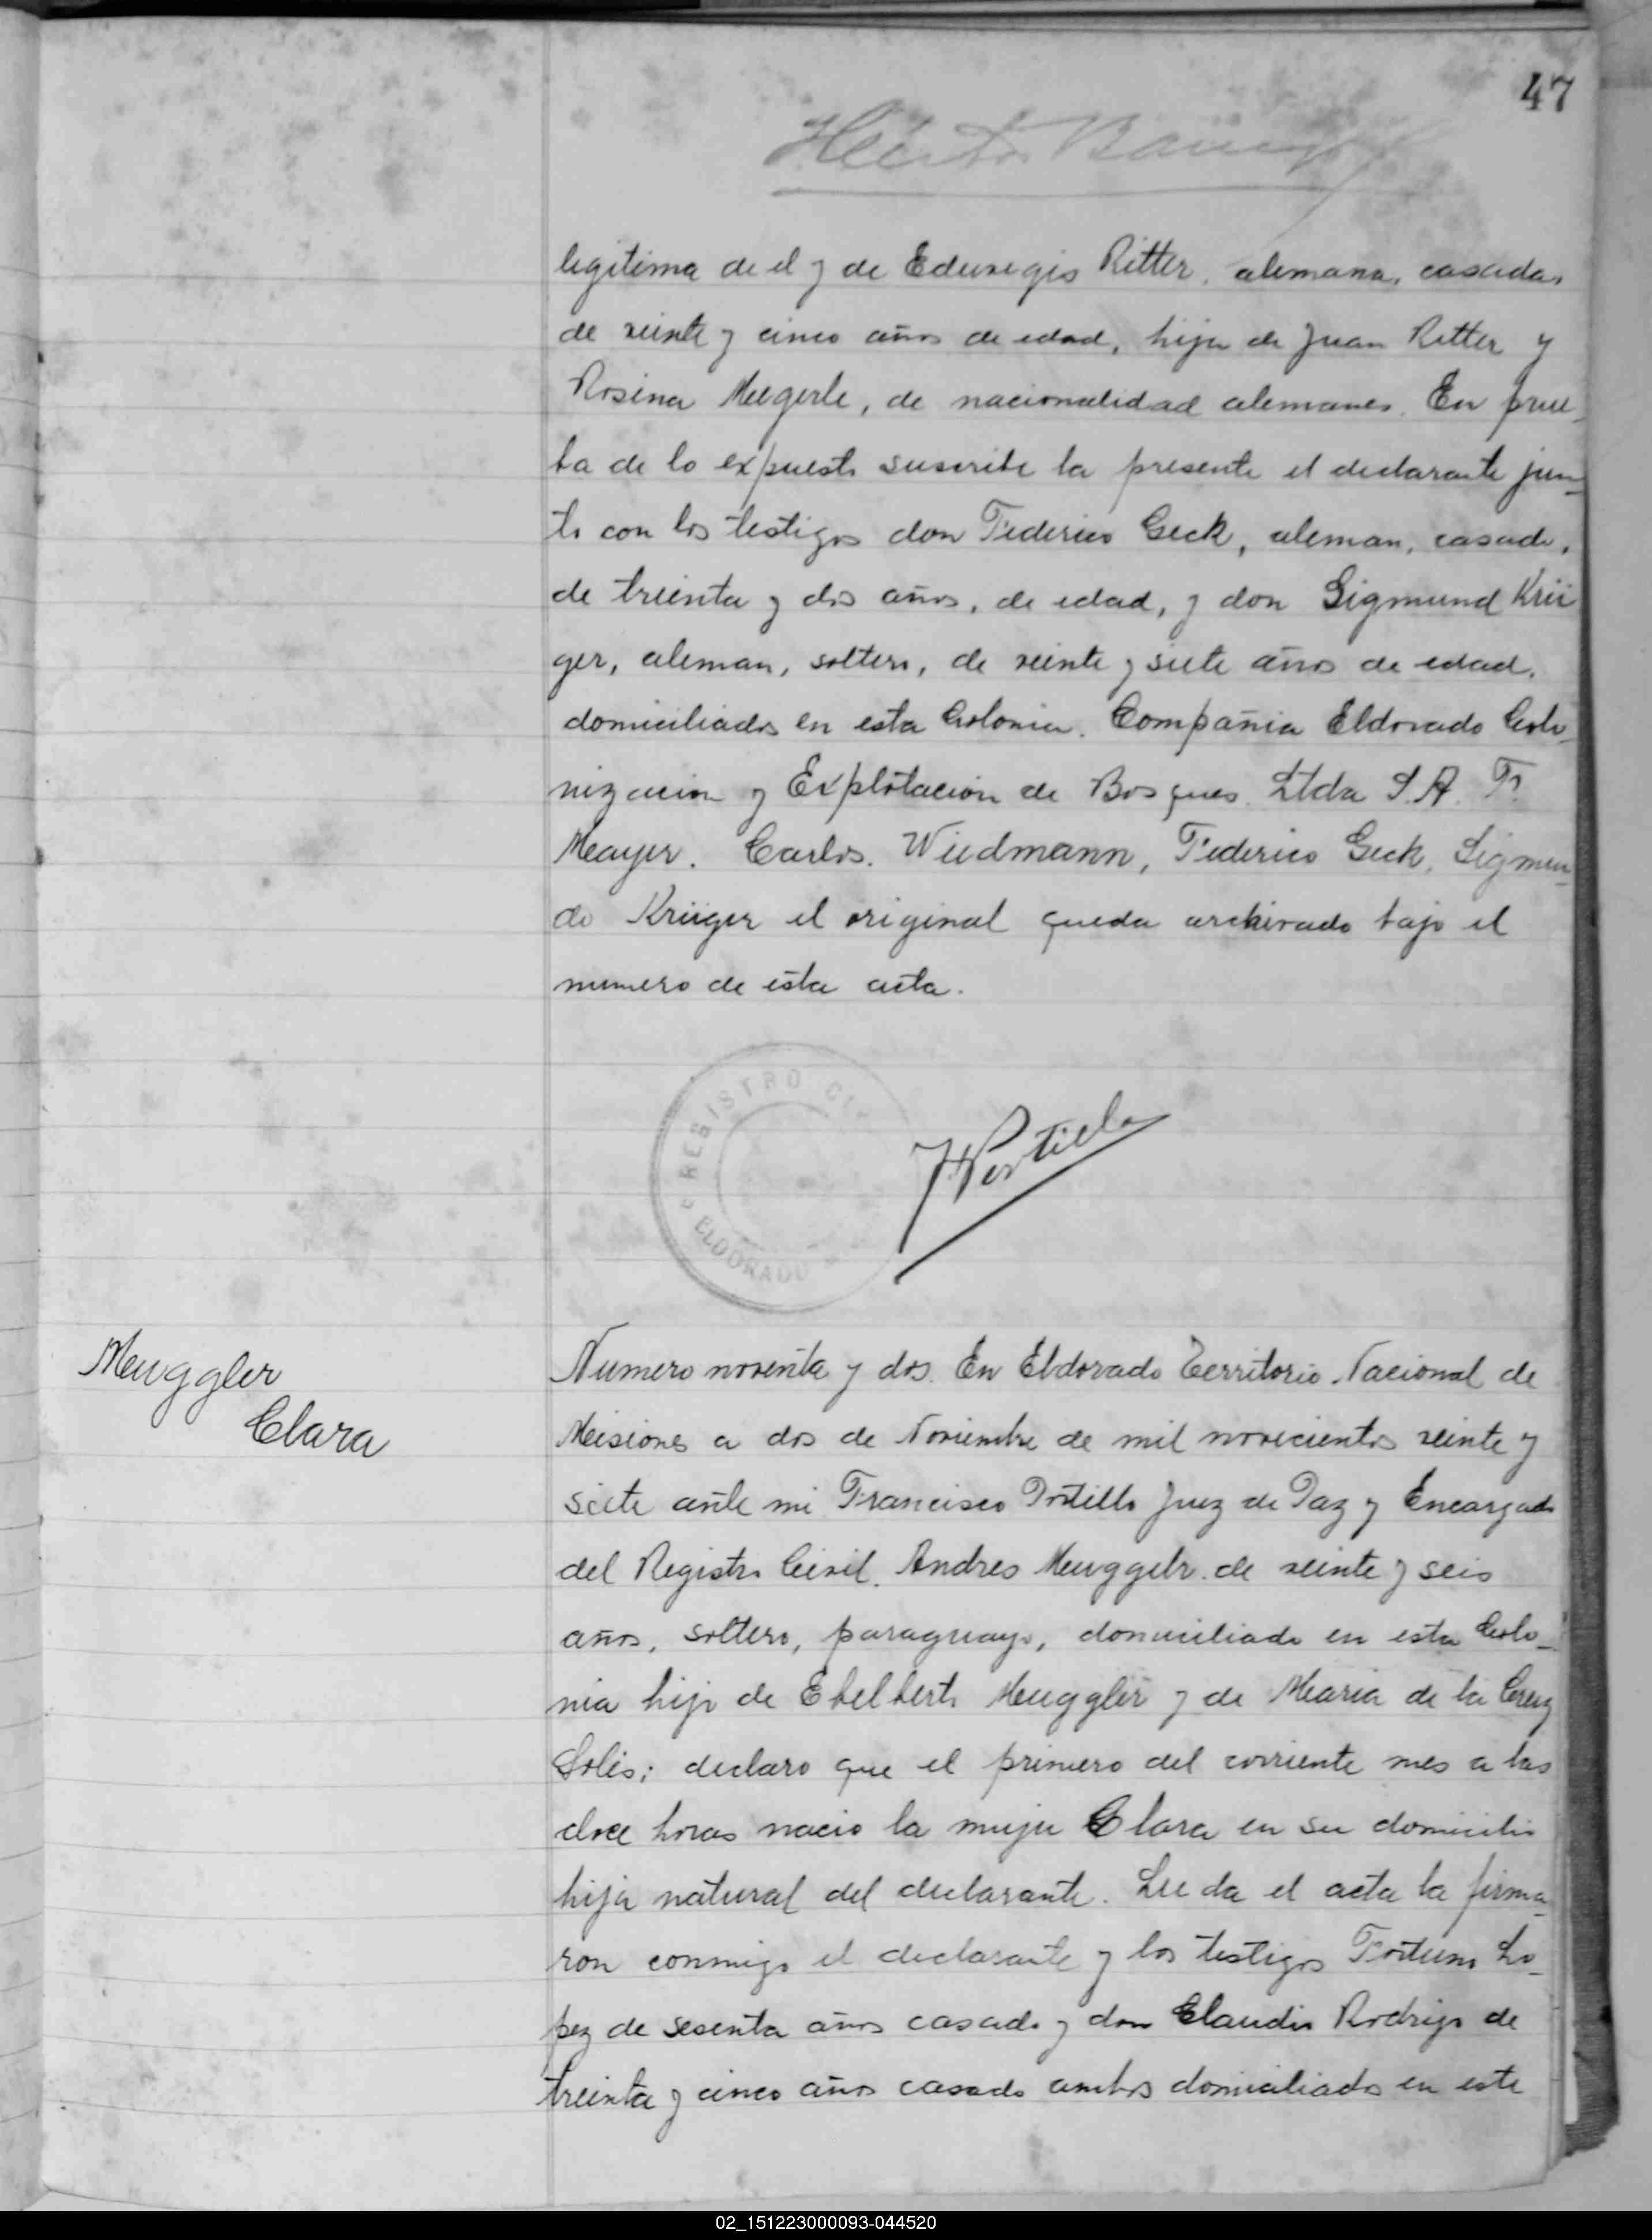 47
legitima de el y de Eduvigis Ritter, alemana, casada,
de veinte y cinco años de edad, hija de Juan Ritter y
Rosina Megerle, de nacionalidad alemanes. En prue-
ba de lo expuesto suscribe la presente el declarante jun-
to con los testigos don Federico Geck, aleman, casado,
de treinta y dos años, de edad, y don Sigmund Krü
ger, aleman, soltero, de veinte y siete años de edad.
domiciliados en esta Colonia. Compañia Eldorado Colo-
nizacion y Explotacion de Bosques Ltda S.A. Fr.
Mayer. Carlos. Wiedmann, Federico Geck, Sigmun-
do Krüger el original queda archivado bajo el
numero de esta acta.
REGISTRO CI
ELDORADO
Meuggler
Clara
Numero noventa y dos. En Eldorado Territorio Nacional de
Misiones a dos de Noviembre de mil novecientos veinte y
siete ante mi Francisco Portillo Juez de Paz y Encargado
del Registro Civil. Andres Meuggelr. de veinte y seis
años, soltero, paraguayo, domiciliado en esta Colo-
nia hijo de Ebelberto Meuggler y de Maria de la Cruz
Solis; declaro que el primero del corriente mes a las
doce horas nacio la mujer Clara en su domicilio
hija natural del declarante. Leida el acta la firma-
ron conmigo el declarante y los testigos Fortuno Lo-
pez de sesenta años casado y don Claudio Rodrigo de
treinta y cinco años casado ambos domiciliados en este
02_151223000093-044520